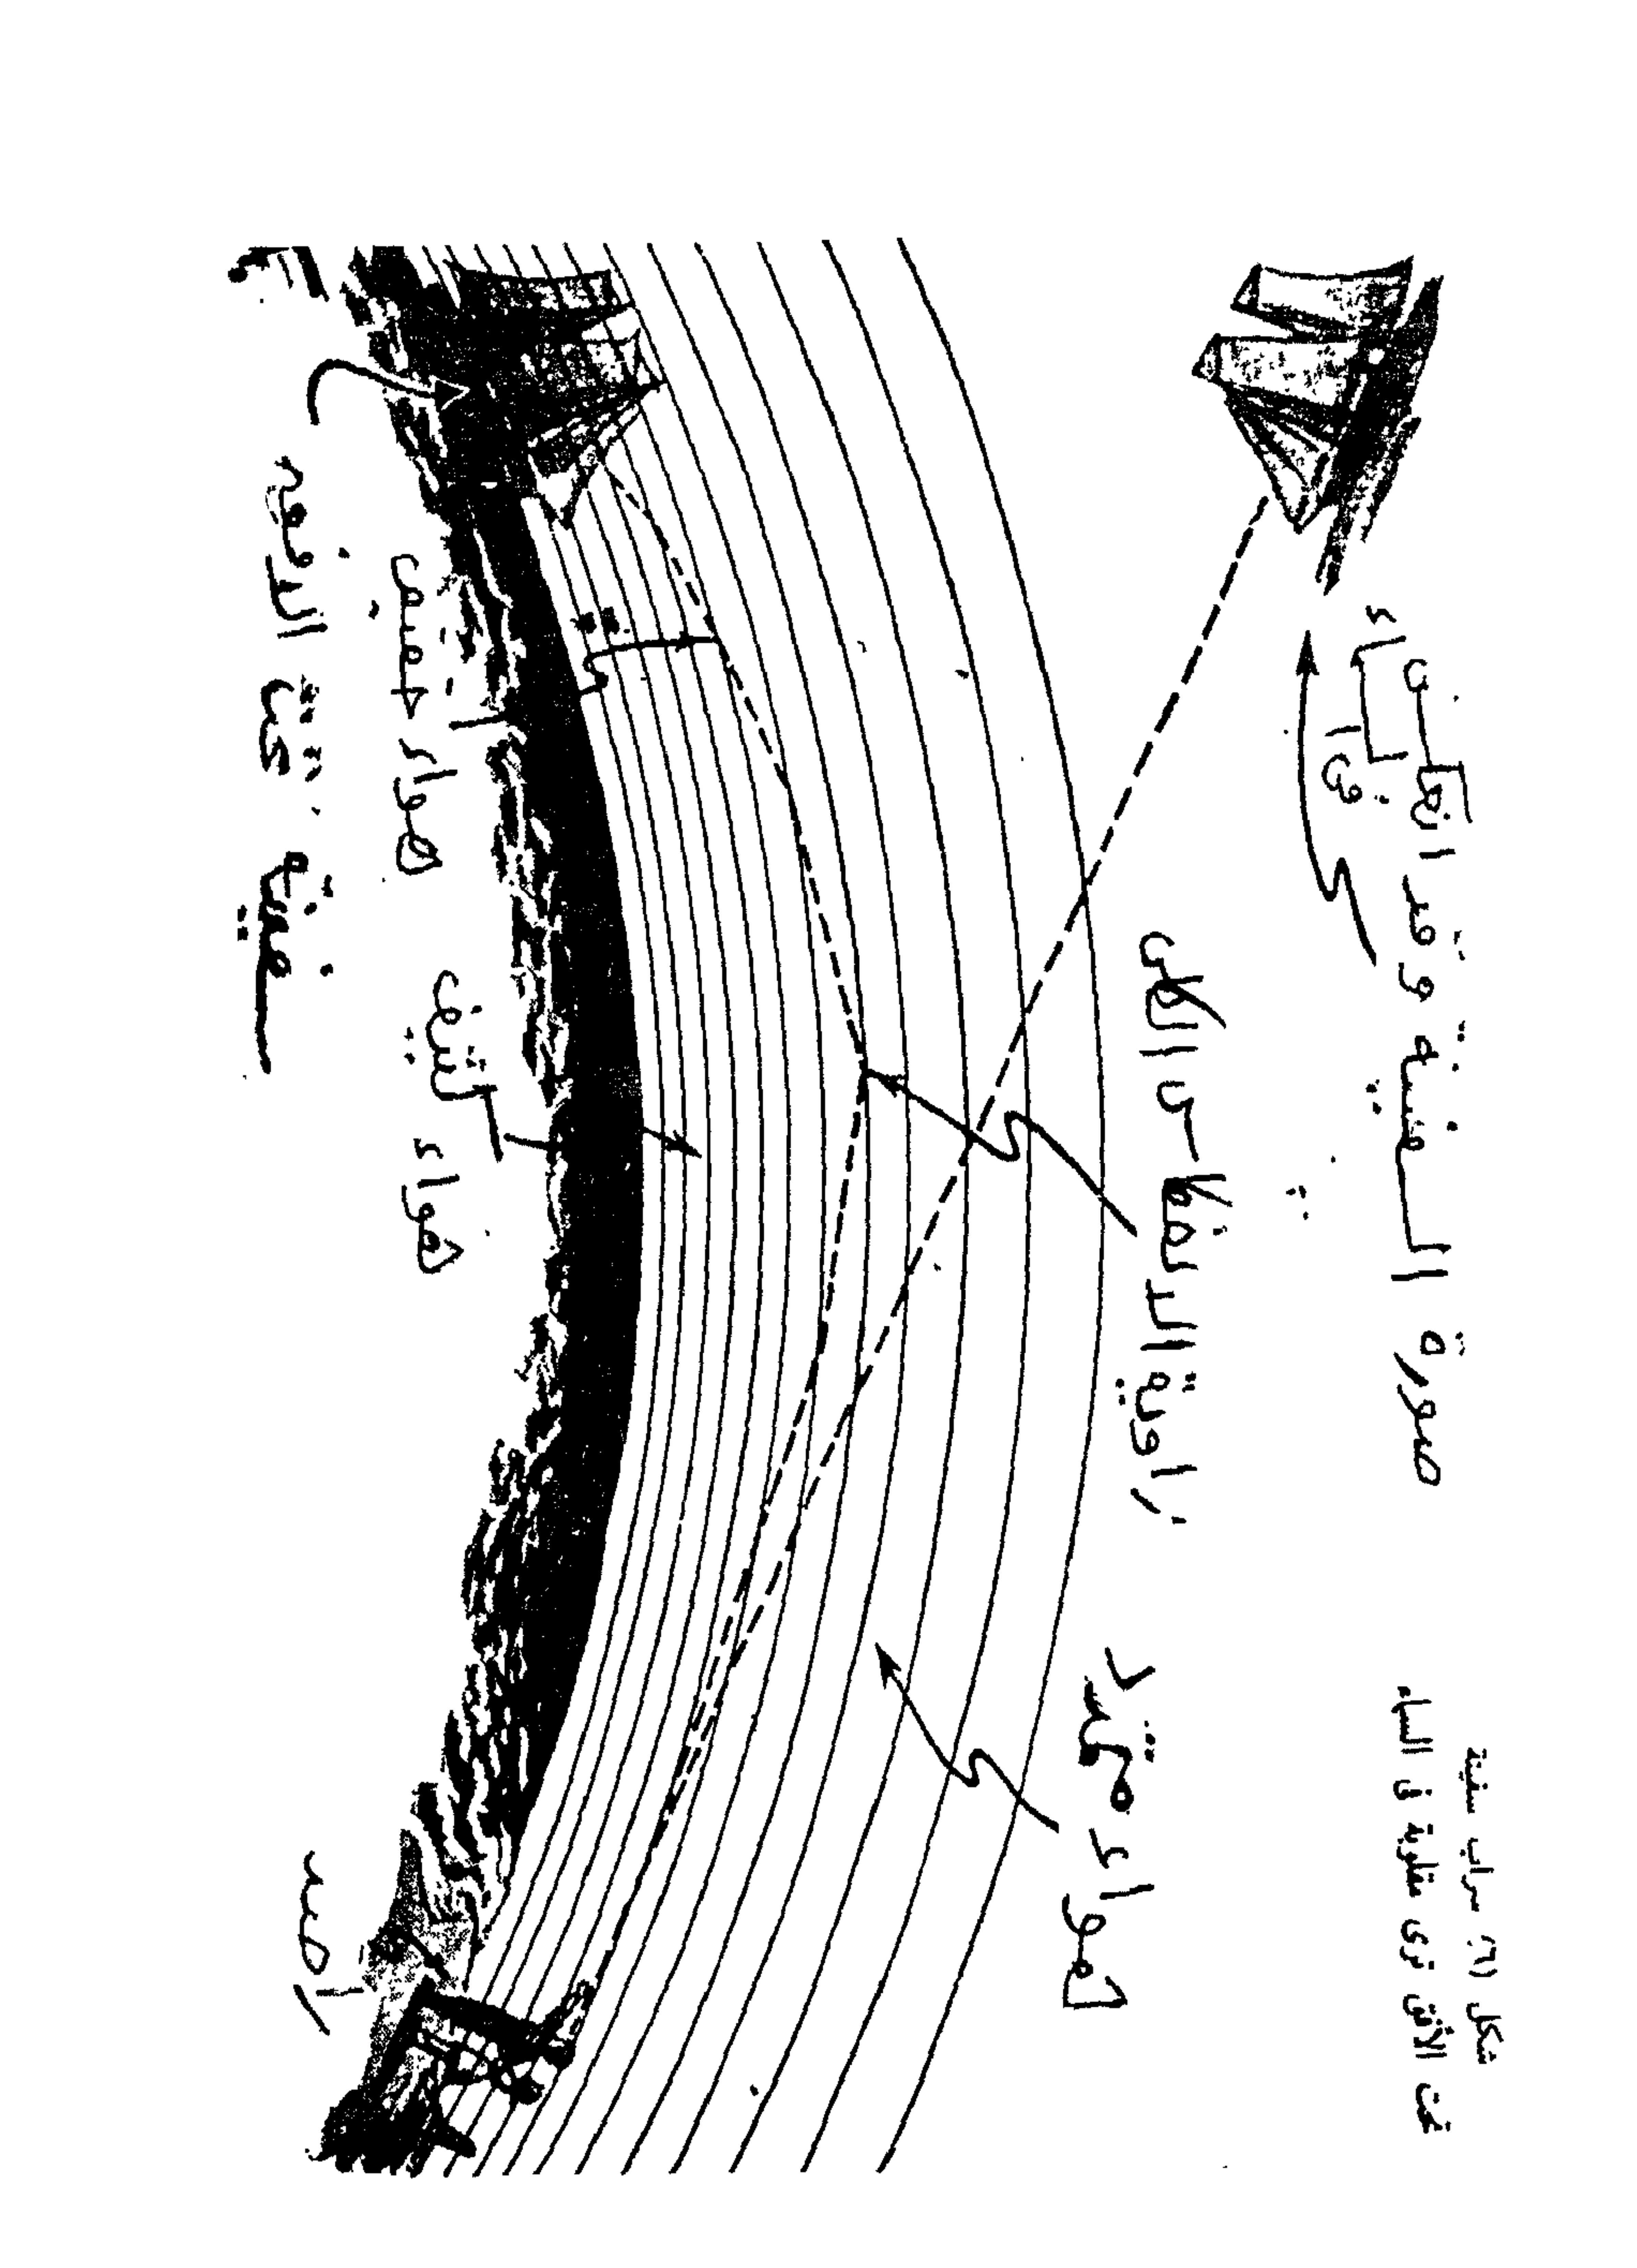 صورة السفينة وقد انعكست
فى السماء
زاوية الانعكاس الكلى
هواء ممتد
هواء كثيف
هواء خفيف
سفينة تحت الأفق
راصد
شكل (٦) سراب سفينة
تحت الأفق ترى مقلوبة فى السماء